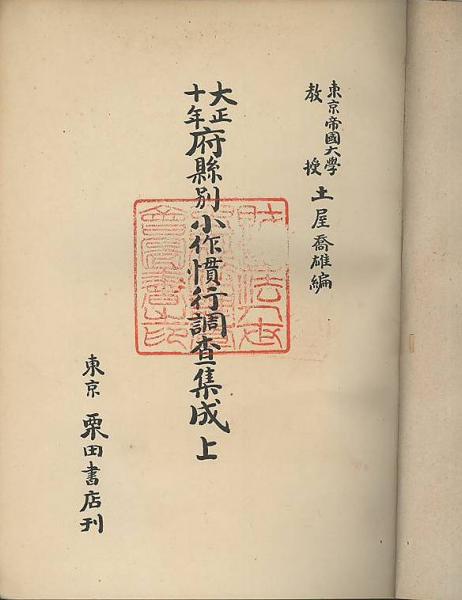 東京帝國大學
教授 土屋喬雄編
大正十年府縣別小作慣行調査集成上
東京 栗田書店刊